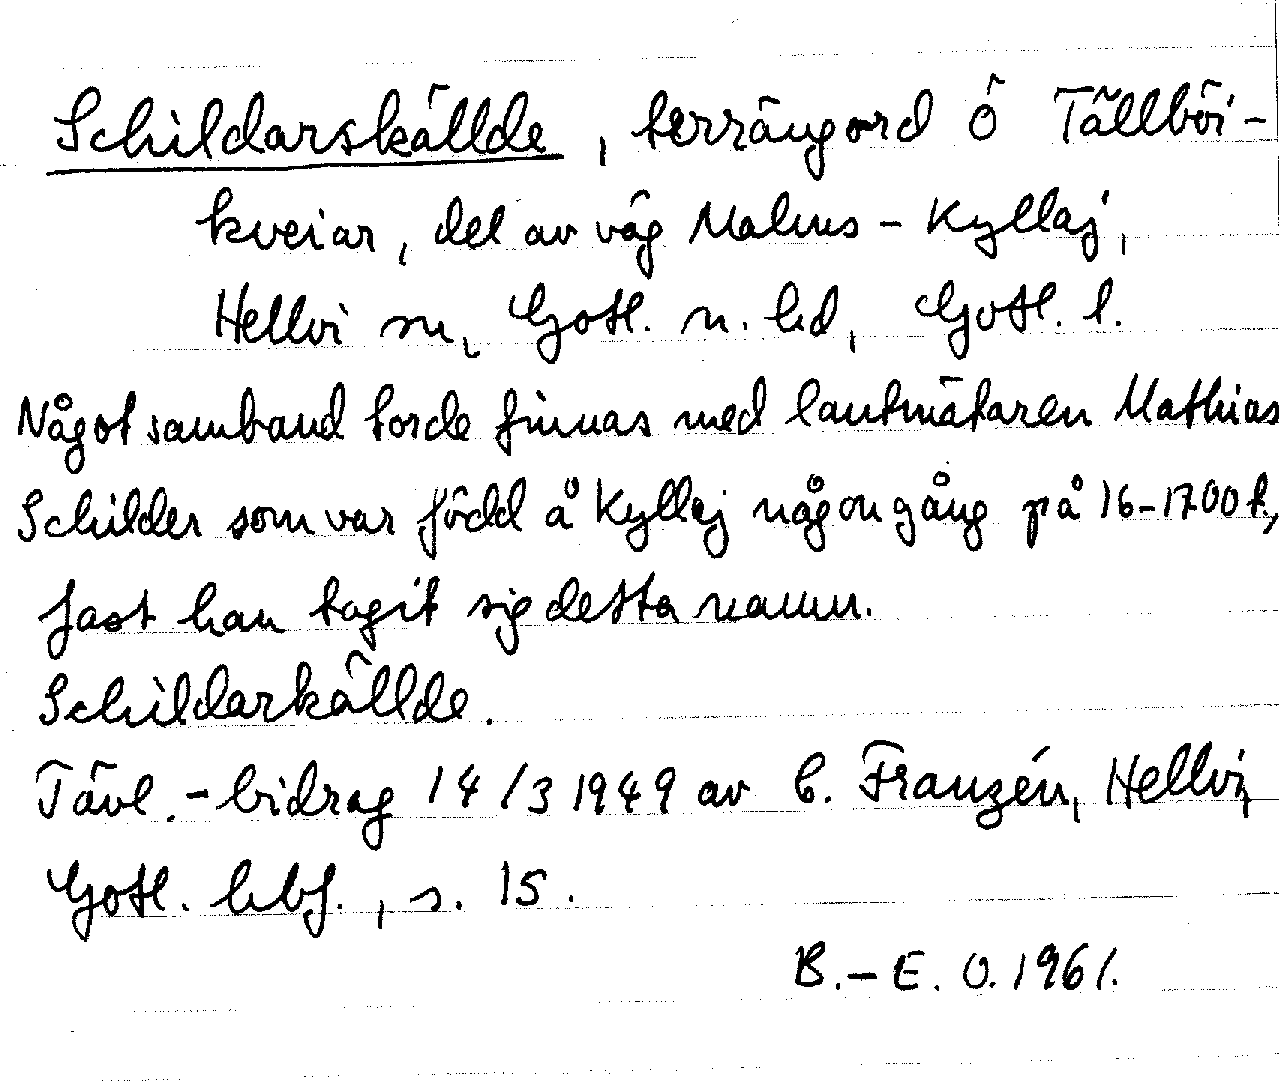 Schildarskällde, terrängord Ö Tällböi-
kveiar, del av väg Malms - Kyllaj,
Hellvi sn, Gotl. n. hd, Gotl. l.
Något samband torde finnas med lantmätaren Mathias
Schilder som var född å Kyllej någon gång på 16-1700 t,
fast han tagit sig detta namn.
Schildarkällde.
Tävl.-bidrag 14/3 1949 av C. Franzén, Hellvi,
Gotl. hbf., s. 15.
B.-E. O. 1961.